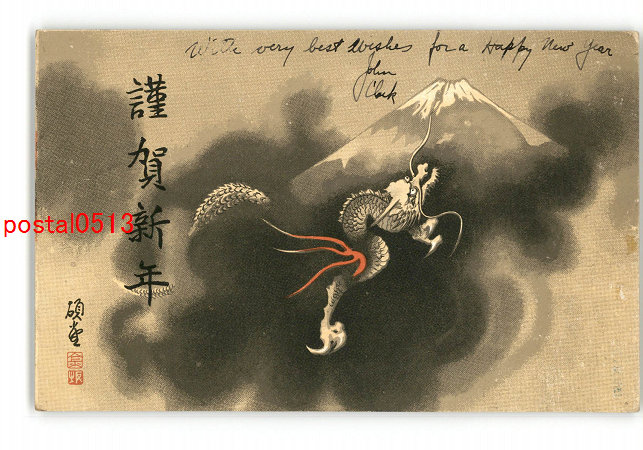 With very best wishes for a Happy New Year
John
Clark
謹賀新年
postal0513
碩堂